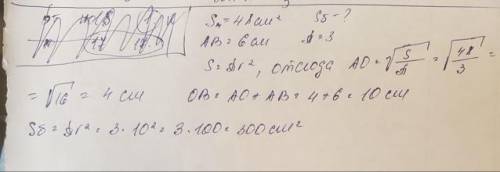 Sм = 48 см² Sб - ?
AB = 6 см π = 3
S = πr², отсюда AO = √S/π = √48/3 =
= √16 = 4 см OB = AO + AB = 4 + 6 = 10 см
Sб = πr² = 3 · 10² = 3 · 100 = 300 см²